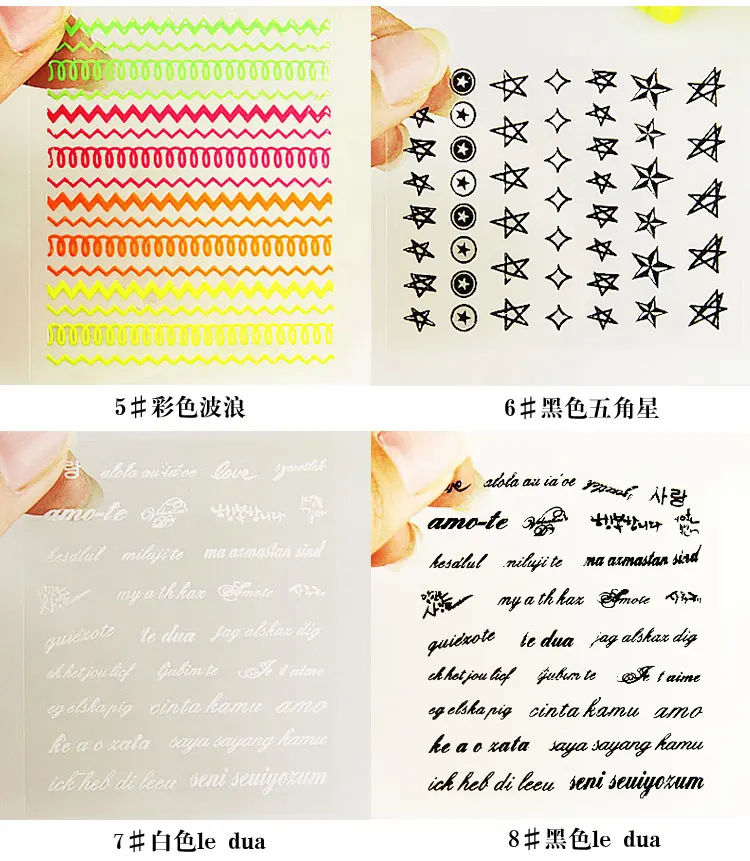 5#彩色波浪
6#黑色五角星
랑 alola au ia'oe love
amo-te 행복합니다
kesdlul miluji te ma azmastan sind
my a th kaz Smote
quiezote te dua jag alskaz dig
ek het jou lief Gubim te Je t'aime
eg elska pig cinta kamu amo
ke a o zata saya sayang kamu
ick heb di leeu seni seuiyozum
7#白色le dua
alola au ia'oe 사랑
amo-te 행복합니다
kesdlul miluji te ma azmastan sind
my a th kaz Smote
quiezote te dua jag alskaz dig
ek het jou lief Gubim te Je t'aime
eg elska pig cinta kamu amo
ke a o zata saya sayang kamu
ick heb di leeu seni seuiyozum
8#黑色le dua